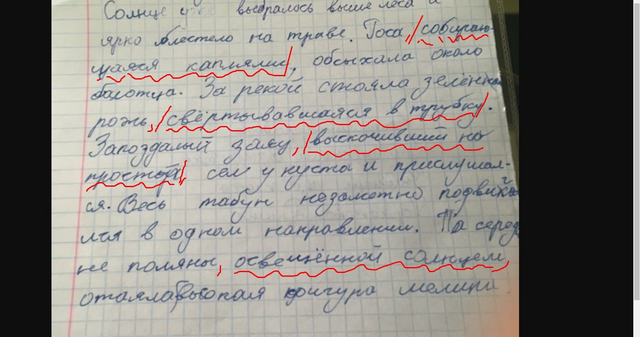 Солнце уже выбралось выше леса и
ярко блестело на траве. Роса, собираю-
щаяся каплями, обсыхала около
болотца. За рекой стояла зелёная
рожь, свёртывавшаяся в трубку.
Запоздалый заяц, выскочивший на
простой, сел у куста и прислушал-
ся. Весь табун незаметно подвигал
лся в одном направлении. На серед
не поляны, освещённой солнцем,
фигура мельника.